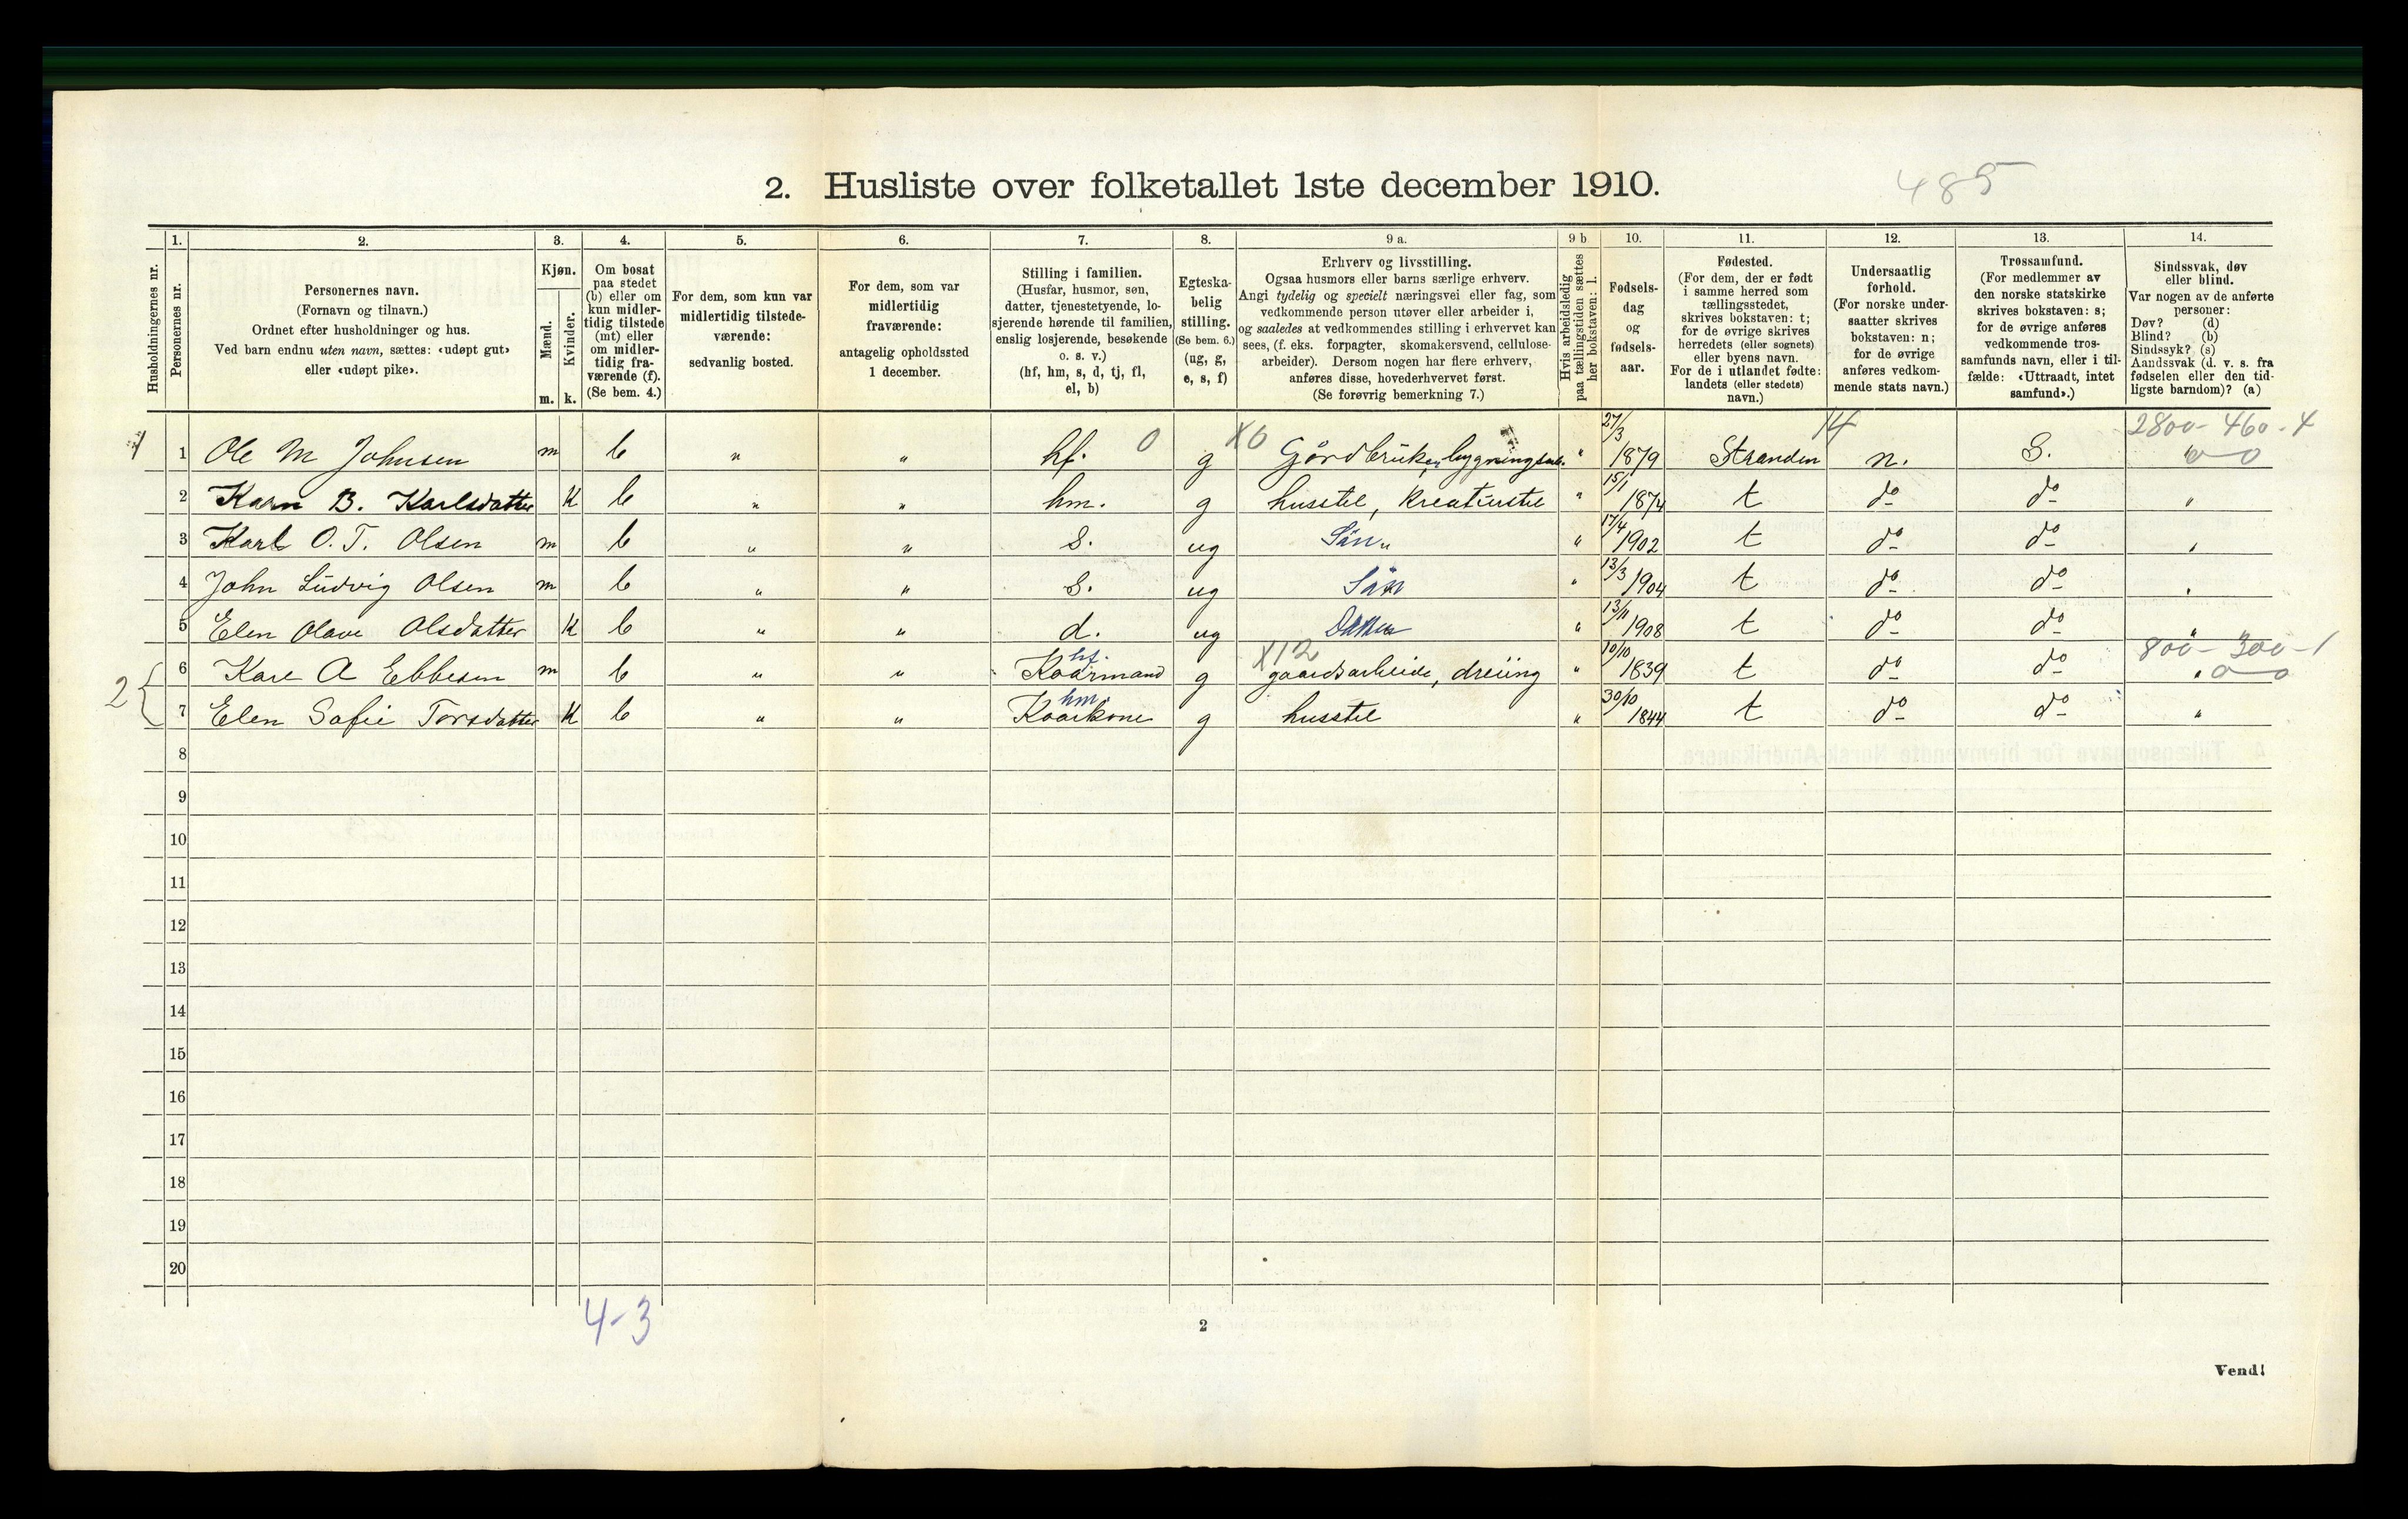 2. Husliste over folketallet 1ste december 1910.
485
Husholdningernes nr.
1. Personernes nr.
2. Personernes navn.
(Fornavn og tilnavn.)
Ordnet efter husholdninger og hus.
Ved barn endnu uten navn, sættes: «udøpt gut»
eller «udøpt pike».
3. Kjøn.
Mænd. m.
Kvinder. k.
4. Om bosat
paa stedet
(b) eller om
kun midler-
tidig tilstede
(mt) eller
om midler-
tidig fra-
værende (f).
(Se bem. 4.)
5. For dem, som kun var
midlertidig tilstede-
værende:
sedvanlig bosted.
6. For dem, som var
midlertidig
fraværende:
antagelig opholdssted
1 december.
7. Stilling i familien.
(Husfar, husmor, søn,
datter, tjenestetyende, lo-
sjerende hørende til familien,
enslig losjerende, besøkende
o. s. v.)
(hf, hm, s, d, tj, fl,
el, b)
8. Egteska-
belig
stilling.
(Se bem. 6.)
(ug, g,
e, s, f)
9 a. Erhverv og livsstilling.
Ogsaa husmors eller barns særlige erhverv.
Angi tydelig og specielt næringsvei eller fag, som
vedkommende person utøver eller arbeider i,
og saaledes at vedkommendes stilling i erhvervet kan
sees, (f. eks. forpagter, skomakersvend, cellulose-
arbeider). Dersom nogen har flere erhverv,
anføres disse, hovederhvervet først.
(Se forøvrig bemerkning 7.)
9 b Hvis arbeidsledig
paa tællingstiden sættes
her bokstaven: l.
10. Fødsels-
dag
og
fødsels-
aar.
11. Fødested.
(For dem, der er født
i samme herred som
tællingsstedet,
skrives bokstaven: t;
for de øvrige skrives
herredets (eller sognets)
eller byens navn.
For de i utlandet fødte:
landets (eller stedets)
navn.)
12. Undersaatlig
forhold.
(For norske under-
saatter skrives
bokstaven: n;
for de øvrige
anføres vedkom-
mende stats navn.)
13. Trossamfund.
(For medlemmer av
den norske statskirke
skrives bokstaven: s;
for de øvrige anføres
vedkommende tros-
samfunds navn, eller i til-
fælde: «Uttraadt, intet
samfund».)
14. Sindssvak, døv
eller blind.
Var nogen av de anførte
personer:
Døv? (d)
Blind? (b)
Sindssyk? (s)
Aandssvak (d. v. s. fra
fødselen eller den tid-
ligste barndom)? (a)
0 X0 14 2800- 460-4
1 1 Ole M Johnsen m b " " hf. g Gårdbruker, bygningsarb. " 27/3 1879 Stranden n. S. " 0 0
2 Karn B. Karlsdatter K b " " hm. g husstel, Kreaturstel " 15/1 1874 t do do "
3 Karl O. T. Olsen m b " " S. ug Sön " " 17/4 1902 t do do "
4 John Ludvig Olsen m b " " S. ug Sön " 13/3 1904 t do do "
5 Elen Olave Olsdatter K b " " d. ug " 13/11 1908 t do do "
hf. X12 800- 300-1
2 6 Karl A Ebbesen m b " " Kaarmand g gaardsarbeide, dreiing " 10/10 1839 t do do " 0 0
hm.
7 Elen Sofie Torsdatter K b " " Kaarkone g husstel " 30/10 1844 t do do "
8
9
10
11
12
13
14
15
16
17
18
19
20
4-3
2
Vend!